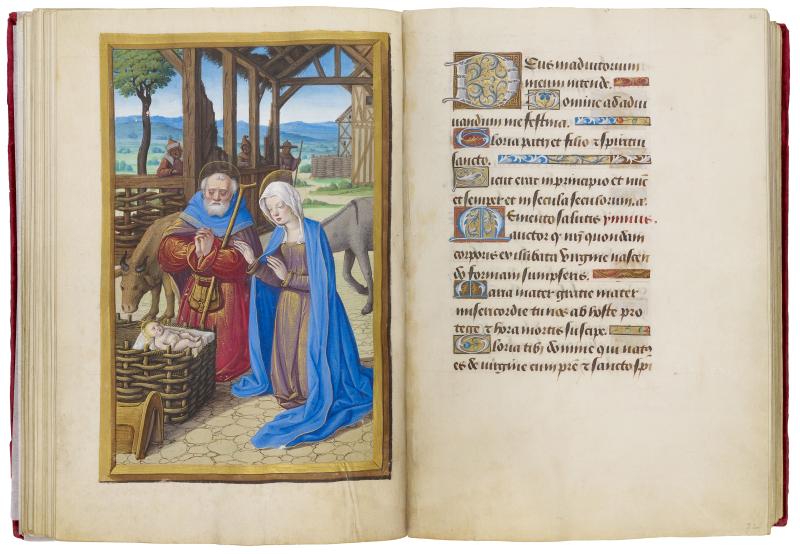 Deus in adiutorium
meum intende.
Domine ad adiu
uandum me festina.
Gloria patri et filio et spiritui
sancto.
Sicut erat in principio et nūc
et semper et in secula seculorum. a.
Memento salutis ymnus.
auctor q nr̄i quondam
corporis ex illibata virgine nascen
do formam sumpseris.
Maria mater gratie mater
misericordie tu nos ab hoste pro
tege et hora mortis suscipe.
Gloria tibi domine qui natus
es de virgine cum pr̄e et sancto spi